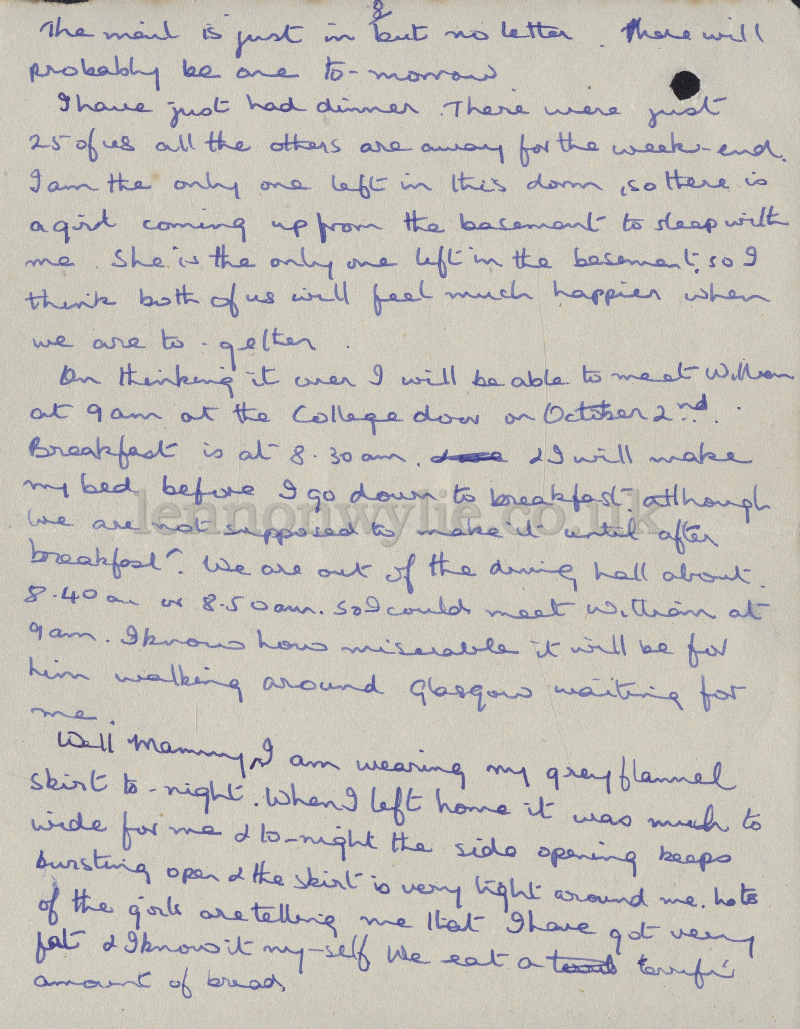 8
The mail is just in but no letter. There will
probably be one to-morrow
I have just had dinner. There were just
25 of us all the others are away for the week-end.
I am the only one left in this dorm, so there is
a girl coming up from the basement to sleep with
me. She is the only one left in the basement, so I
think both of us will feel much happier when
we are to-gether.
On thinking it over I will be able to meet William
at 9am at the College door on October 2nd.
Breakfast is at 8.30am. & I will make
my bed before I go down to breakfast, although
lennonwylie.co.uk
we are not supposed to make it until after
breakfast. We are out of the dining hall about
8.40am or 8.50am. so I could meet William at
9am. I know how miserable it will be for
him walking around Glasgow waiting for
me.
Well Mammy, I am wearing my grey flannel
skirt to-night. When I left home it was much to
wide for me & to-night the side opening keeps
bursting open & the skirt is very tight around me. Lots
of the girls are telling me that I have got very
fat & I know it my-self We eat a terrific
amount of bread.